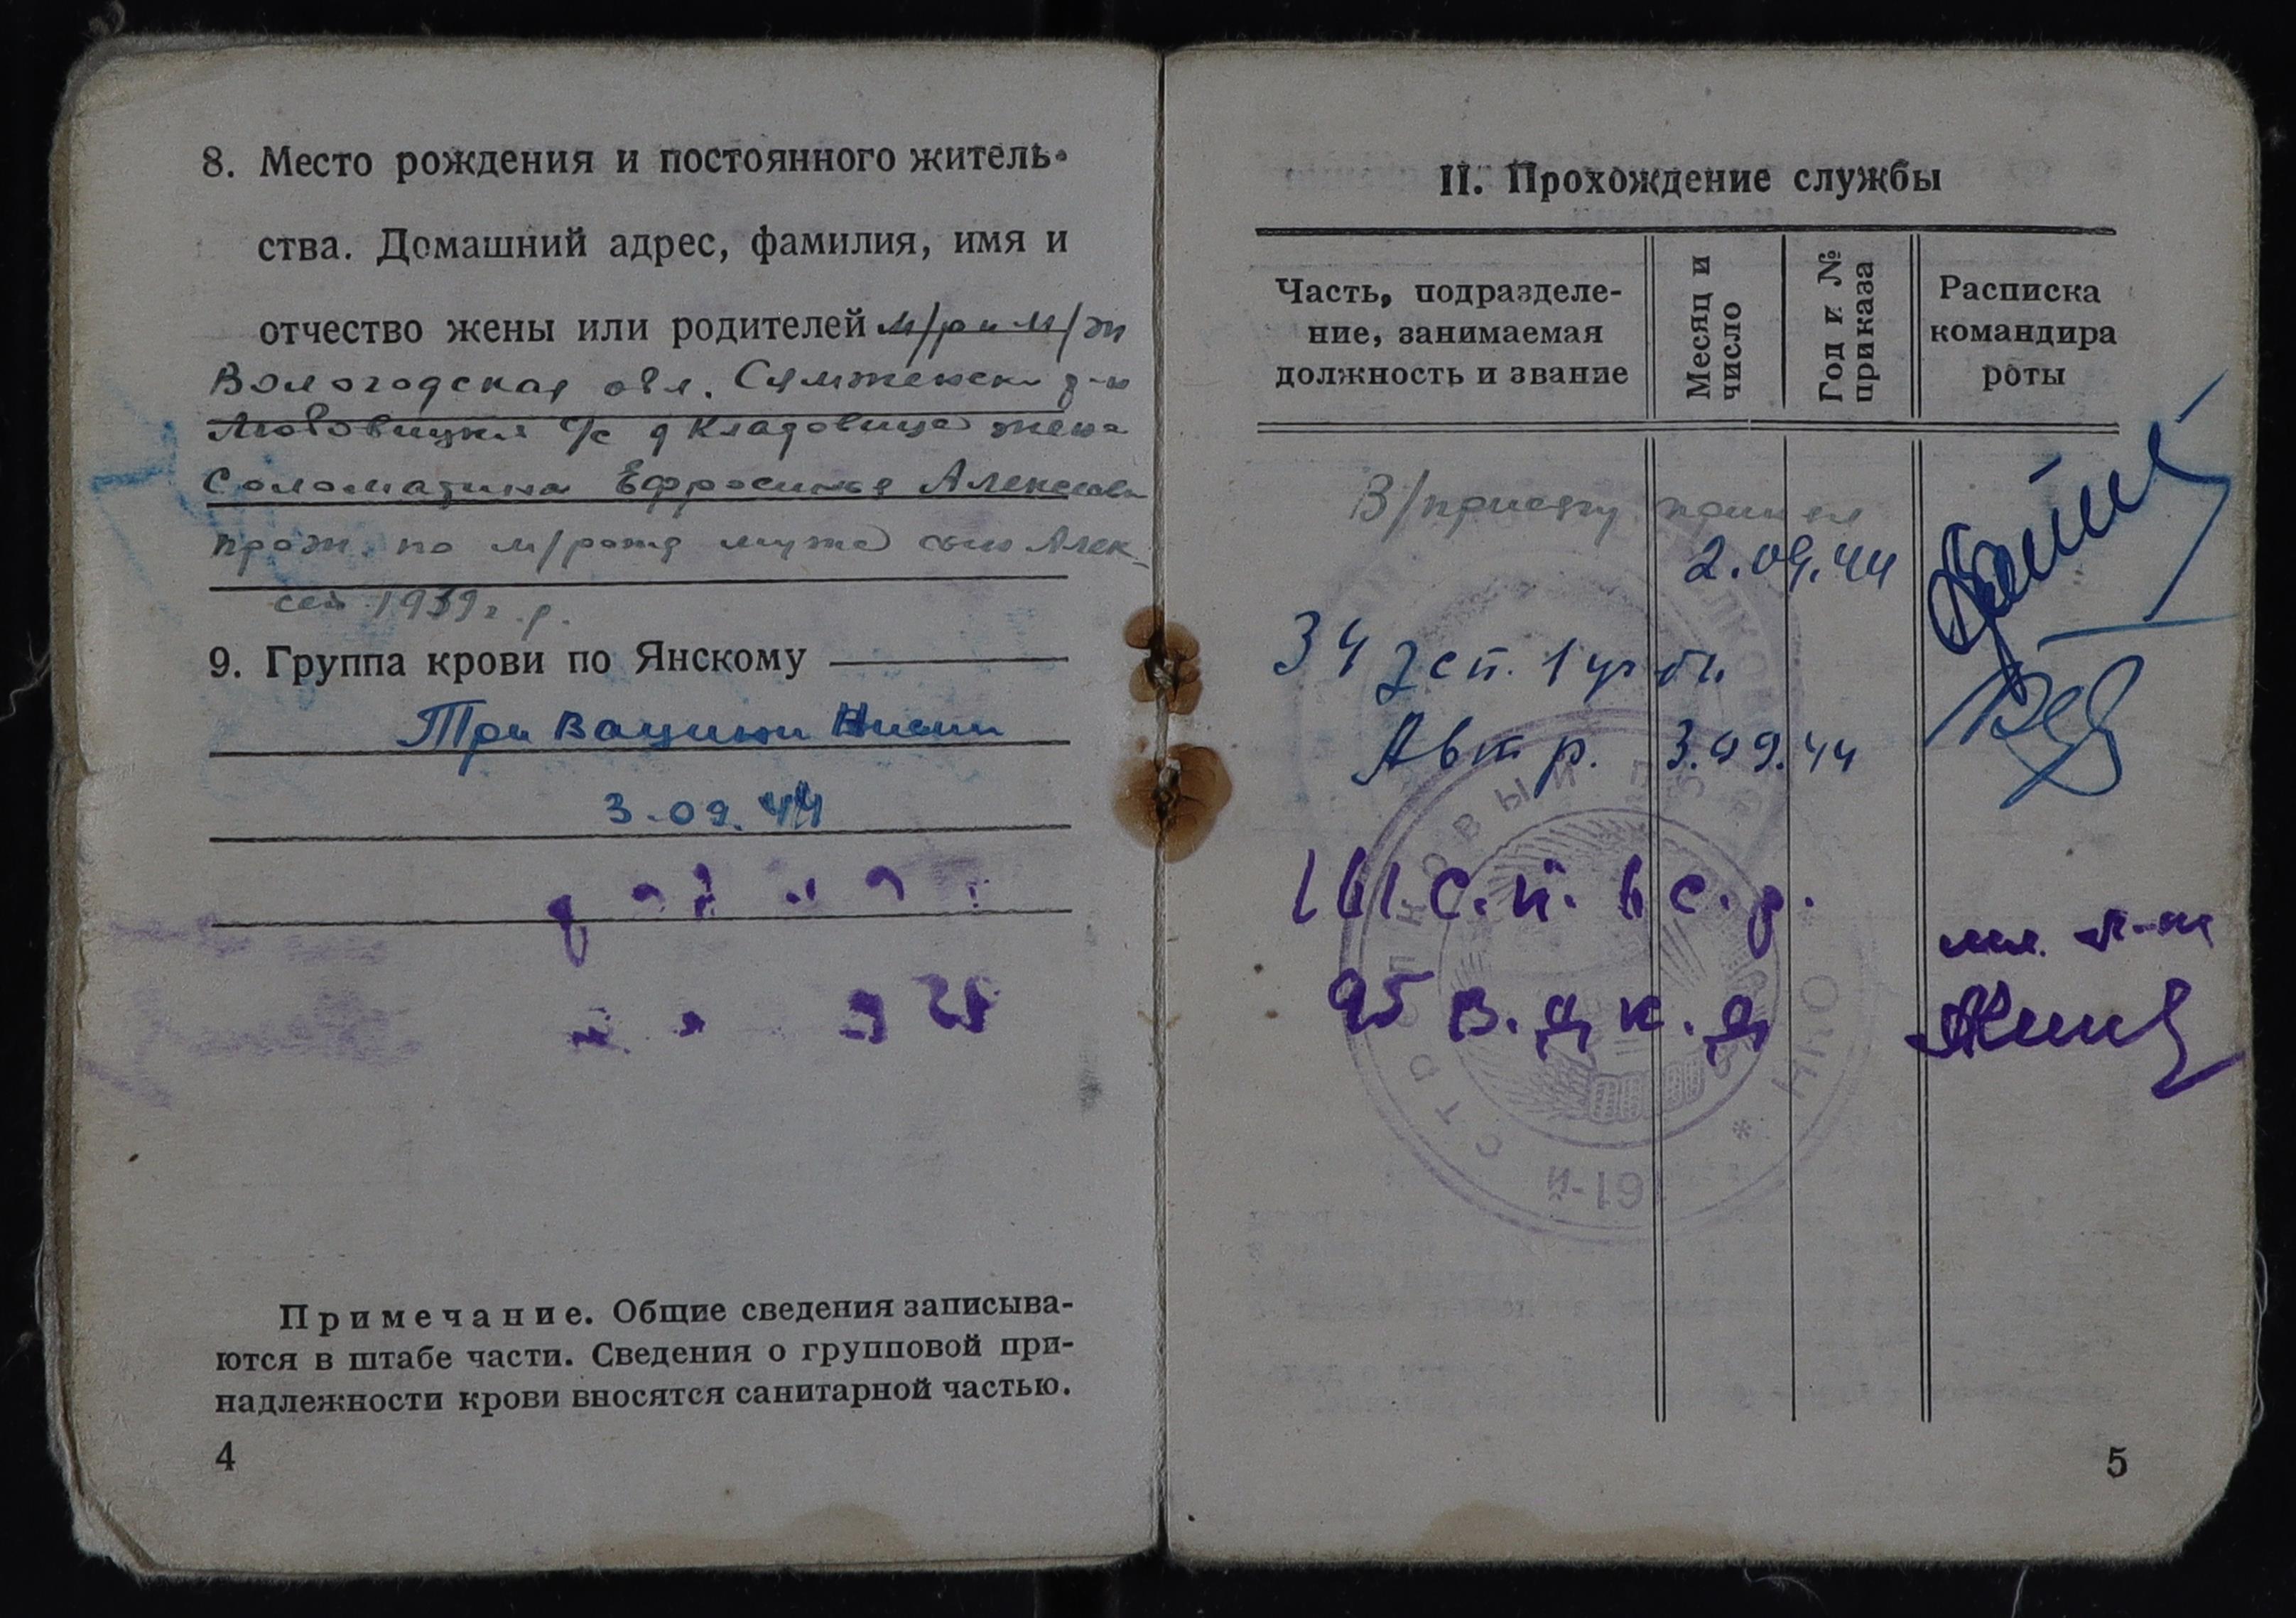 8. Место рождения и постоянного житель-
ства. Домашний адрес, фамилия, имя и
отчество жены или родителей м/р и м/ж
Вологодская обл. Сямженск р-н
с/с д Кладовица жена
Соломатина Ефросинья Алексеевн
прож. по м/рожд мужа сын Алек-
сей 1939 г.р.
9. Группа крови по Янскому
Три Вацини
3.09.44
Примечание. Общие сведения записыва-
ются в штабе части. Сведения о групповой при-
надлежности крови вносятся санитарной частью.
4
II. Прохождение службы
Часть, подразделе-
ние, занимаемая
должность и звание
Месяц и
число
Год и №
приказа
Расписка
командира
роты
В/присягу принял
2.09.44
34 зсп. 1 уч бн
Авт р. 3.09.44
161 с.п. 6 с.д.
мл. л-т
95 в. д к. д
161-й
НКО
5